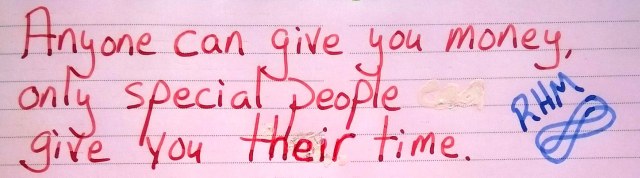 Anyone can give you money,
only special people
give you their time.
RHM